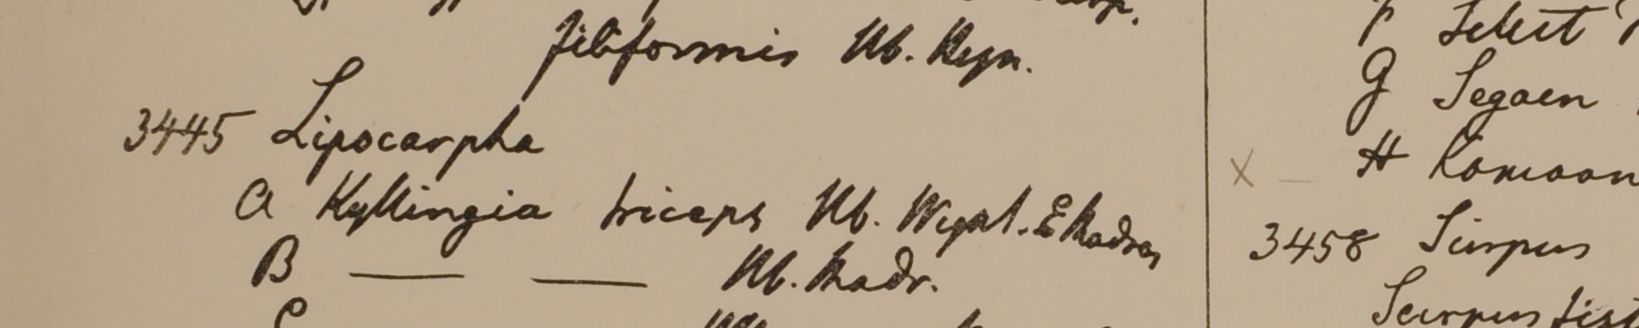 filiformis Hb. Heyn.
3445 Lipocarpha
a Kyllingia triceps Hb. Wight. E Madras
B — — Hb. Madr.
F Silhet
G Segaen
X — H Kamaon
3458 Scirpus
Scirpus